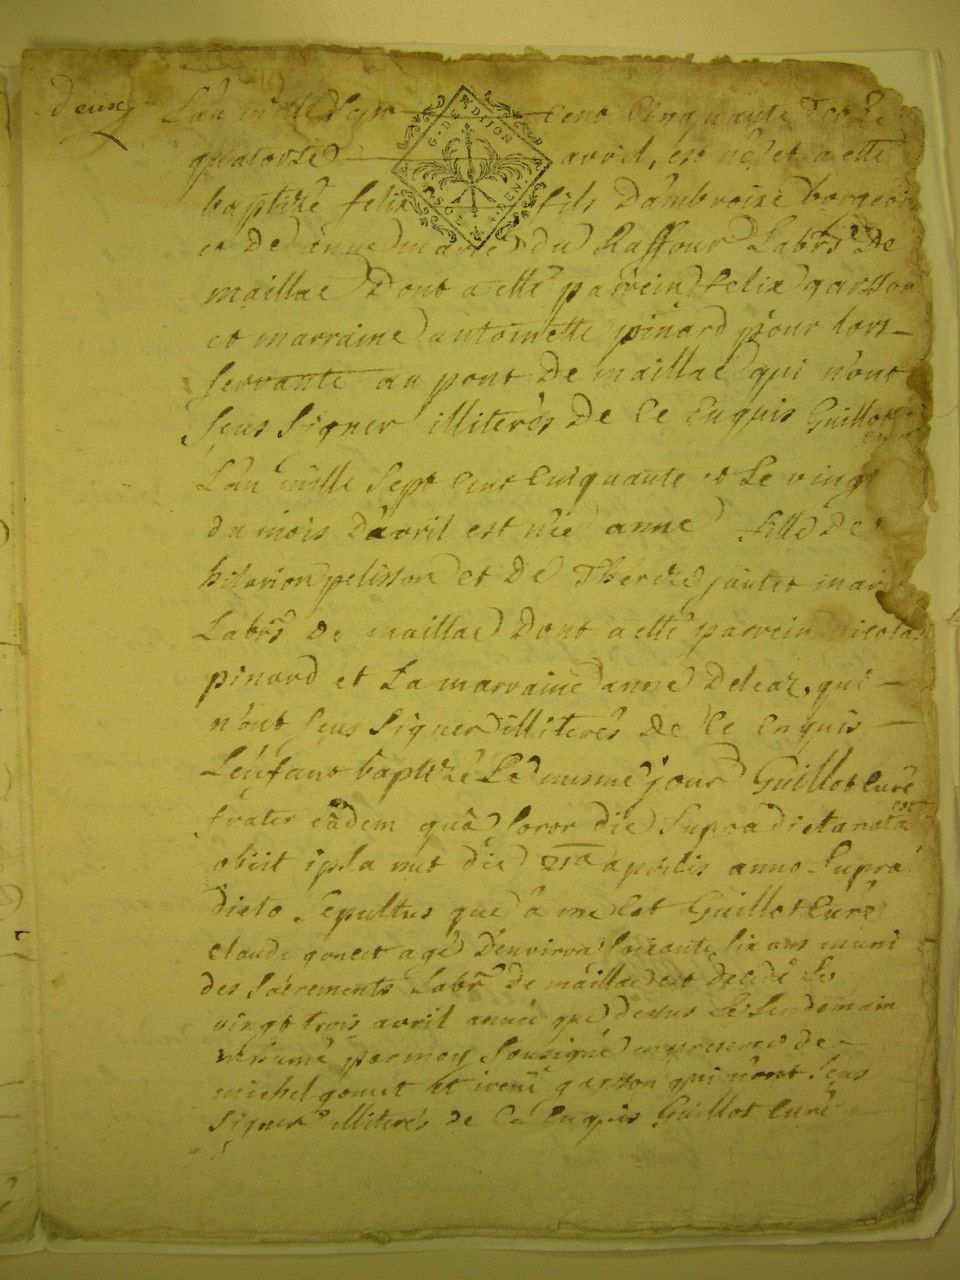 deux
L'an mille Sept cent Cinquante et Le
quatorze avril, est né et a etté
baptizé felix fils D'ambroise borgeois
et De anne marie du Raffour Labrs De
maillac Dont a etté parrein felix garsson
et marraine antoinette pinard pour lors
servante au pont De maillac qui n'ont
sçus signer illiterés De Ce Enquis Guillot
curé
L'an mille Sept Cent Cinquante et Le vingt
du mois D'avril est née anne fille De
hilarion pelisson et De Thereze jautet mari
Labrs De maillac Dont a etté parrein nicolas
pinard et La marraine anne Deleaz, qui
n'ont sçus signer illiterés De Ce Enquis
L'enfant baptizé Le meme jour Guillot Curé
frater eâdem quâ soror die Supra dicta nata
est
obiit ipsa met die 21a aprilis anno Supra
dicto Sepultus que à me Est Guillot Curé
claude goncet agé D'environ soixante six ans muni
des sacrements Labr De maillac est Decedé Le
vingt trois avril année que dessus Et Le lendemain
inhumé par moy Sousigné en presence de
michel goncet et irené garsson qui n'ont sçus
signer illiterés de Ce Enquis Guillot Curé
G. DE DIJON